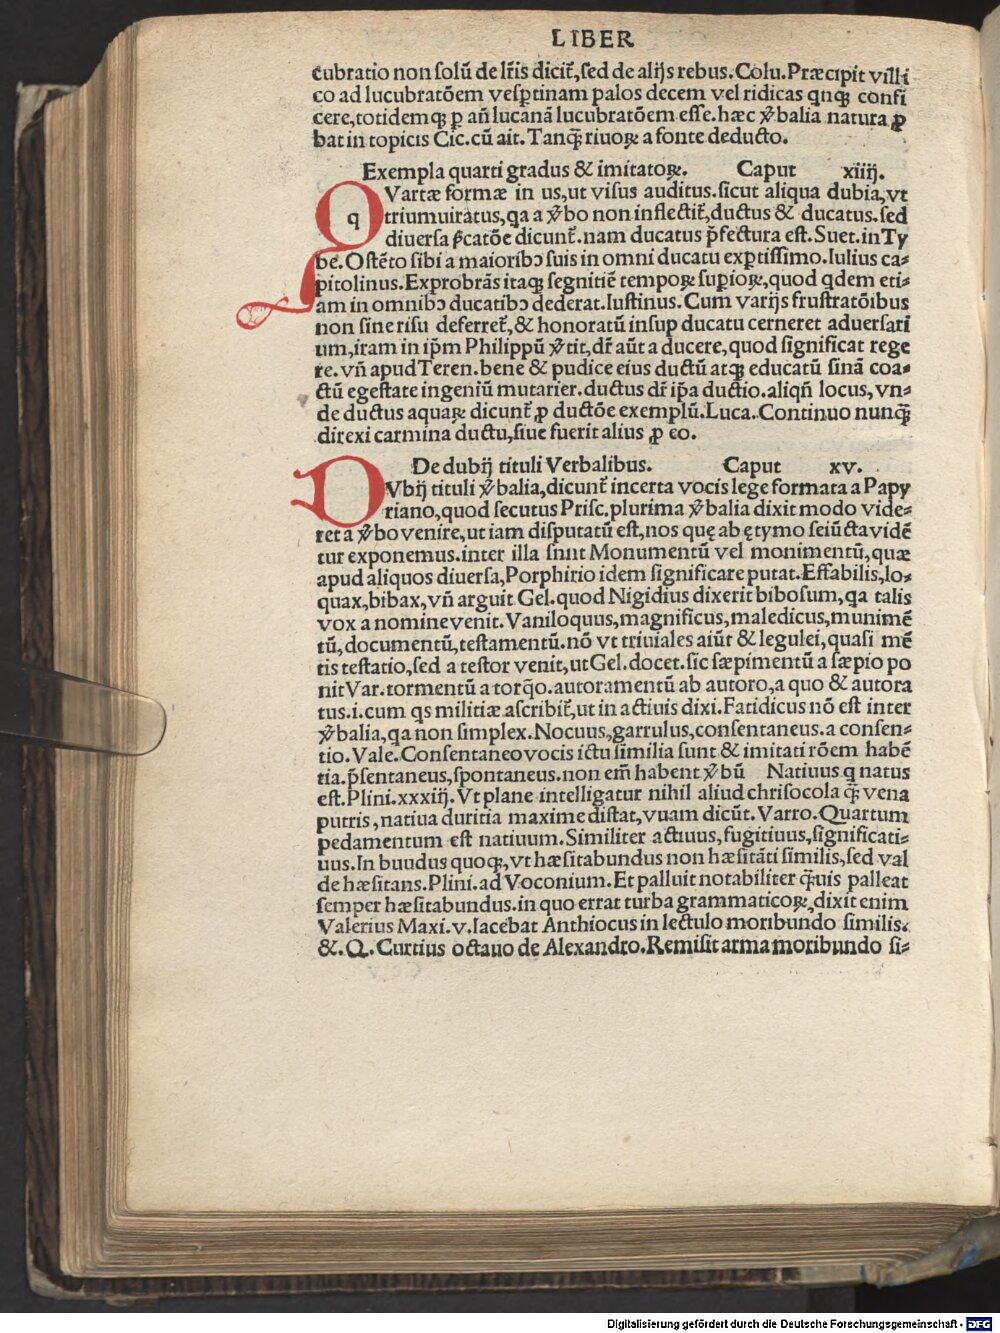 LIBER
cubratio non ſolũ de lr̃is dicit̃, ſed de alijs rebus. Colu. Præcipit villi
co ad lucubratõem veſꝑtinam palos decem vel ridicas qnqꝫ confi
cere, totidemqꝫ ꝑ añ lucanã lucubratõem eſſe. hæc v̾balia natura ꝓ
bat in topicis Cic. cũ ait. Tanq̃ riuoꝝ a fonte deducto.
Exempla quarti gradus & imitatoꝝ. Caput xiiij.
q Vartæ formæ in us, ut viſus auditus. ſicut aliqua dubia, vt
triumuiratus, qa a v̾bo non inflectit̃, ductus & ducatus. ſed
diuerſa p̃catõe dicunt̃. nam ducatus p̃fectura eſt. Suet. in Ty
be. Oſtẽto ſibi a maioribꝰ ſuis in omni ducatu exꝑtiſſimo. Iulius ca⸗
pitolinus. Exprobrãs itaqꝫ ſegnitiẽ tempoꝝ ſuꝑioꝝ, quod qdem eti⸗
am in omnibꝰ ducatibꝰ dederat. Iuſtinus. Cum varijs fruſtratõibus
non ſine riſu deferret̃, & honoratũ inſup ducatu cerneret aduerſari
um, iram in ip̃m Philippũ v̾tit, dr̃ aũt a ducere, quod ſignificat rege
re. vñ apud Teren. bene & pudice eius ductũ atqꝫ educatũ ſinã coa⸗
ctũ egeſtate ingeniũ mutarier. ductus dr̃ ip̃a ductio. aliqñ locus, vn⸗
de ductus aquaꝝ dicunt̃ ꝓ ductõe exemplũ. Luca. Continuo nunq̃
direxi carmina ductu, ſiue fuerit alius ꝓ eo.
De dubij tituli Verbalibus. Caput xv.
D Vbij tituli v̾balia, dicunt̃ incerta vocis lege formata a Papy
riano, quod ſecutus Priſc. plurima v̾balia dixit modo vide⸗
ret a v̾bo venire, ut iam diſputatũ eſt, nos quę ab ętymo ſeiũcta vidẽ
tur exponemus. inter illa ſunt Monumentũ vel monimentũ, quæ
apud aliquos diuerſa, Porphirio idem ſignificare putat. Effabilis, lo⸗
quax, bibax, vñ arguit Gel. quod Nigidius dixerit biboſum, qa talis
vox a nomine venit. Vaniloquus, magnificus, maledicus, munimẽ
tũ, documentũ, teſtamentũ. nõ vt triuiales aiũt & legulei, quaſi mẽ
tis teſtatio, ſed a teſtor venit, ut Gel. docet. ſic ſæpimentũ a ſæpio po
nit Var. tormentũ a torq̃o. autoramentũ ab autoro, a quo & autora
tus. i. cum qs militiæ aſcribit̃, ut in actiuis dixi. Fatidicus nõ eſt inter
v̾balia, qa non ſimplex. Nocuus, garrulus, conſentaneus. a conſen⸗
tio. Vale. Conſentaneo vocis ictu ſimilia ſunt & imitati rõem habẽ
tia. p̃ſentaneus, ſpontaneus. non em̃ habent v̾bũ Natiuus q natus
eſt. Plini. xxxiij. Vt plane intelligatur nihil aliud chriſocola q̃ vena
putris, natiua duritia maxime diſtat, vuam dicũt. Varro. Quartum
pedamentum eſt natiuum. Similiter actiuus, fugitiuus, ſignificati⸗
uus. In buudus quoqꝫ, vt hæſitabundus non hæſitãti ſimilis, ſed val
de hæſitans. Plini. ad Voconium. Et palluit notabiliter q̃uis palleat
ſemper hæſitabundus. in quo errat turba grammaticoꝝ, dixit enim
Valerius Maxi. v. Iacebat Anthiocus in lectulo moribundo ſimilis.
&. Q. Curtius octauo de Alexandro. Remiſit arma moribundo ſi⸗
Digitalisierung gefördert durch die Deutsche Forschungsgemeinschaft - DFG